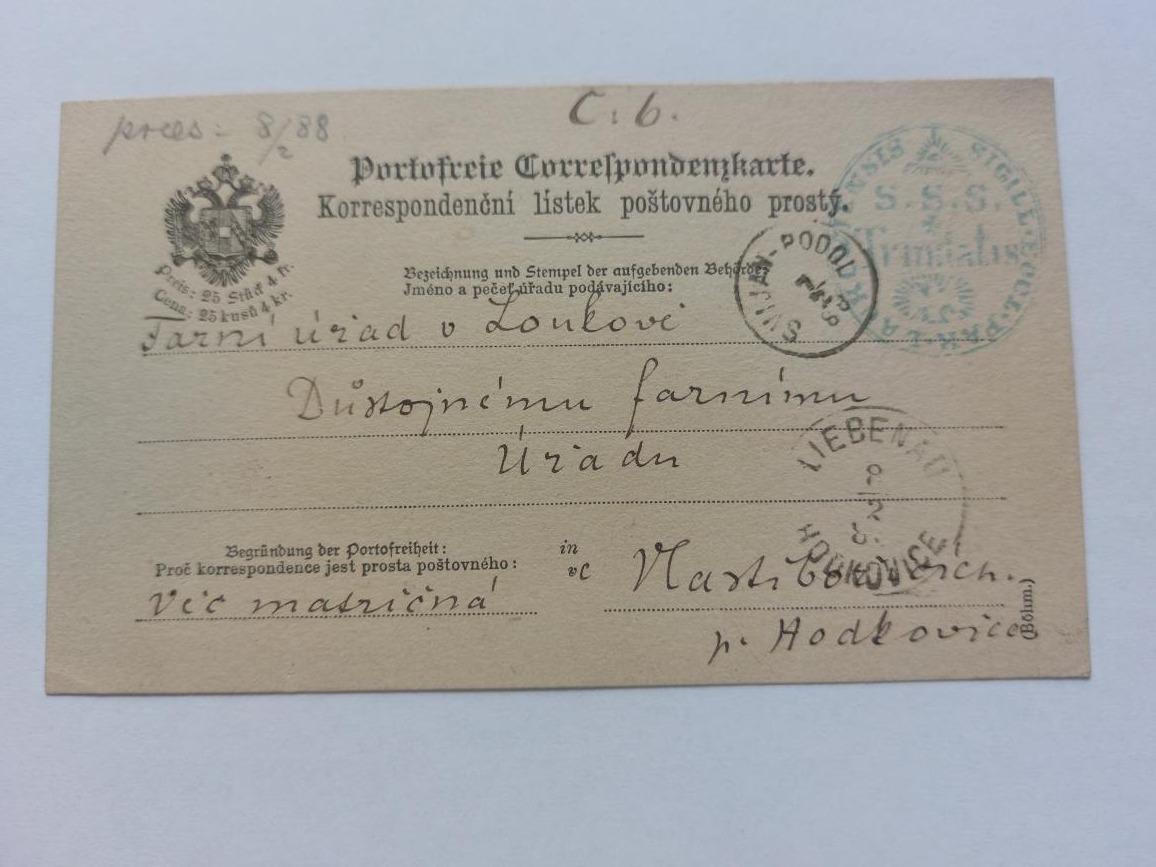 præs: 8/2 88
C. b.
Portofreie Correspondenzkarte.
Korrespondenční lístek poštovného prostý.
Preis: 25 Stück 4 kr.
Cena: 25 kusů 4 kr.
Bezeichnung und Stempel der aufgebenden Behörde:
Jméno a pečeť úřadu podávajícího:
SVIJAN-PODOL
SIGILL. ECCL. PAR.
S. S. S.
Trinitatis
Farní úřad v Loukově
Důstojnému farnímu
Úřadu
LIEBENAU
8/2
HODKOVICE
Begründung der Portofreiheit:
Proč korrespondence jest prosta poštovného:
in
ve
Věc matričná
Vlastibořicích.
p. Hodkovice
(Böhm.)